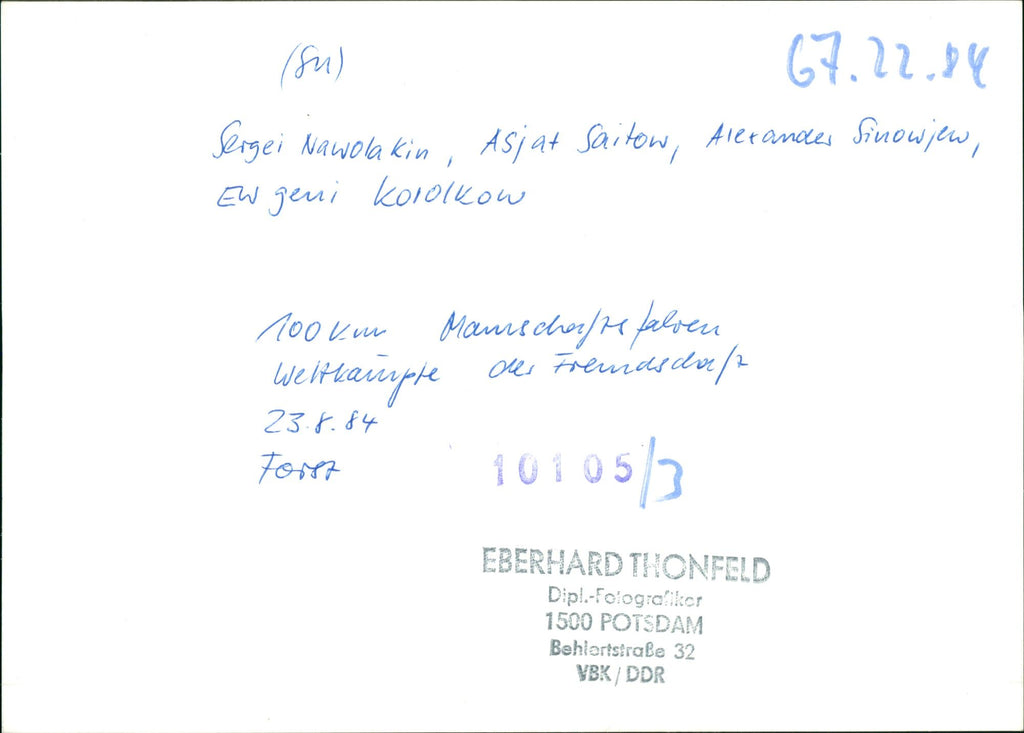 (SU)
67.22.84
Sergei Nawolakin, Asjat Saitow, Alexander Sinowjew,
Ewgeni Korolkow
100 km Mannschaftsfahren
Wettkämpfe der Freundschaft
23.8.84
Forst
10105/3
EBERHARD THONFELD
Dipl.-Fotografiker
1500 POTSDAM
Behlertstraße 32
VBK / DDR